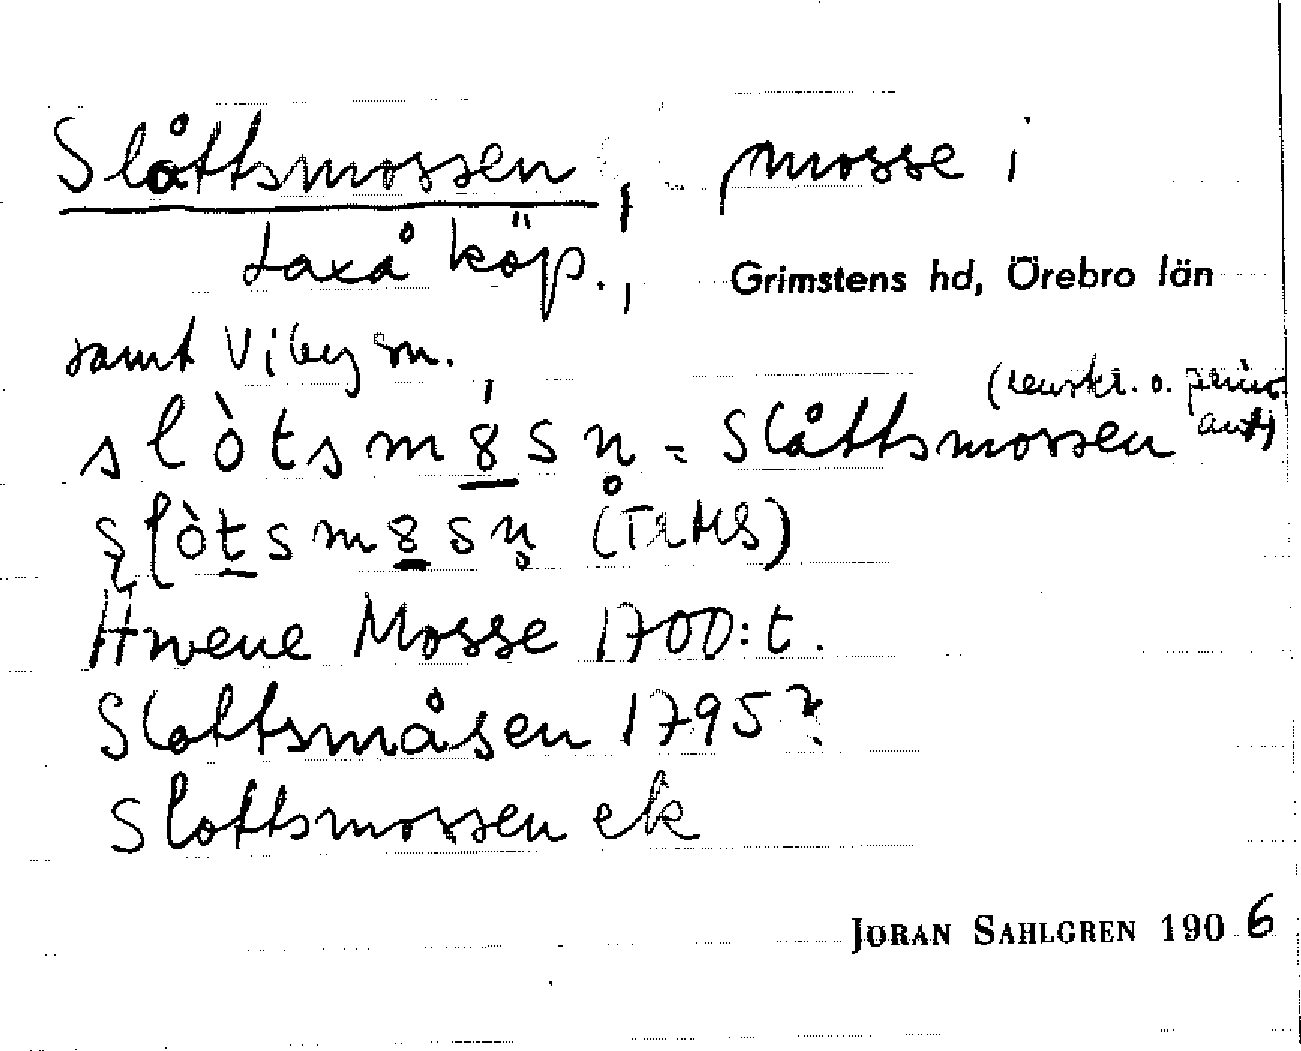 Slåttsmossen, mosse i
Laxå köp., Grimstens hd, Örebro län
samt Viby sn.
slòtsm8sn = Slåttsmossen
slòtsm8sn
Hwene Mosse 1700:t.
Slottsmåsen 1795?
Slottsmossen ek
JÖRAN SAHLGREN 1906